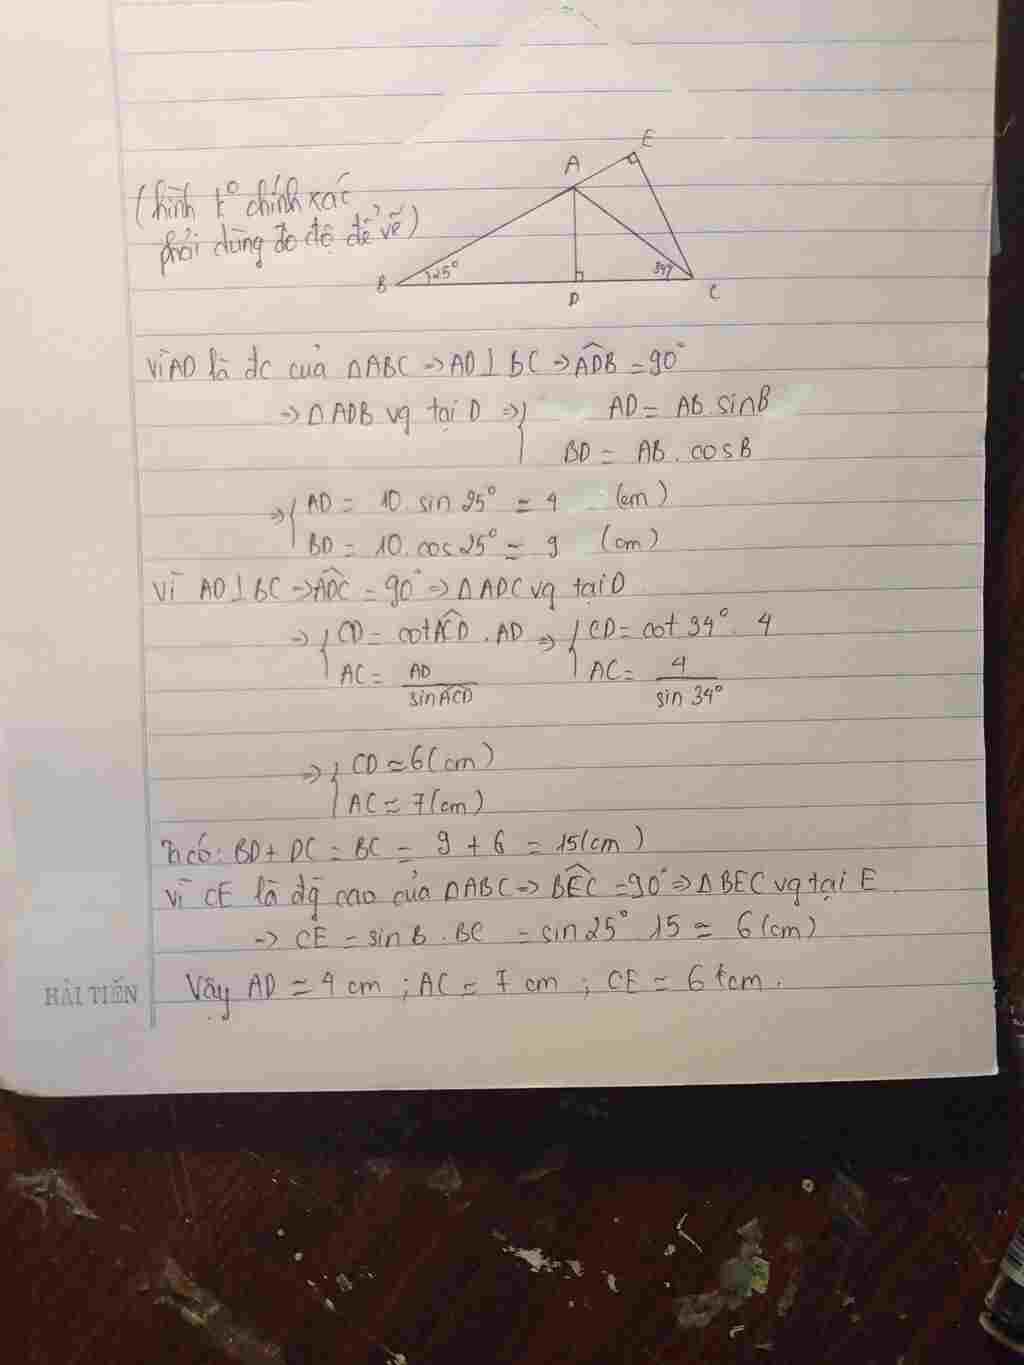 E
A
(hình k° chính xác
phải dùng đo độ để vẽ)
B 25° 34° C
D
Vì AD là đc của △ABC → AD ⊥ BC → ADB̂ = 90°
→ △ADB vg tại D → { AD = AB. sinB
BD = AB. cosB
→ { AD = 10. sin 25° ≃ 4 (cm)
BD = 10. cos 25° ≃ 9 (cm)
Vì AD ⊥ BC → ADĈ = 90° → △ADC vg tại D
→ { CD = cot ACD̂ . AD → { CD = cot 34° . 4
AC = AD / sin ACD̂ AC = 4 / sin 34°
→ { CD ≃ 6 (cm)
AC ≃ 7 (cm)
Ta có: BD + DC = BC = 9 + 6 = 15 (cm)
Vì CE là đg cao của △ABC → BEĈ = 90° → △BEC vg tại E
→ CE = sin B . BC = sin 25° . 15 ≃ 6 (cm)
Vậy AD ≃ 4 cm ; AC ≃ 7 cm ; CE ≃ 6 cm.
HẢI TIẾN